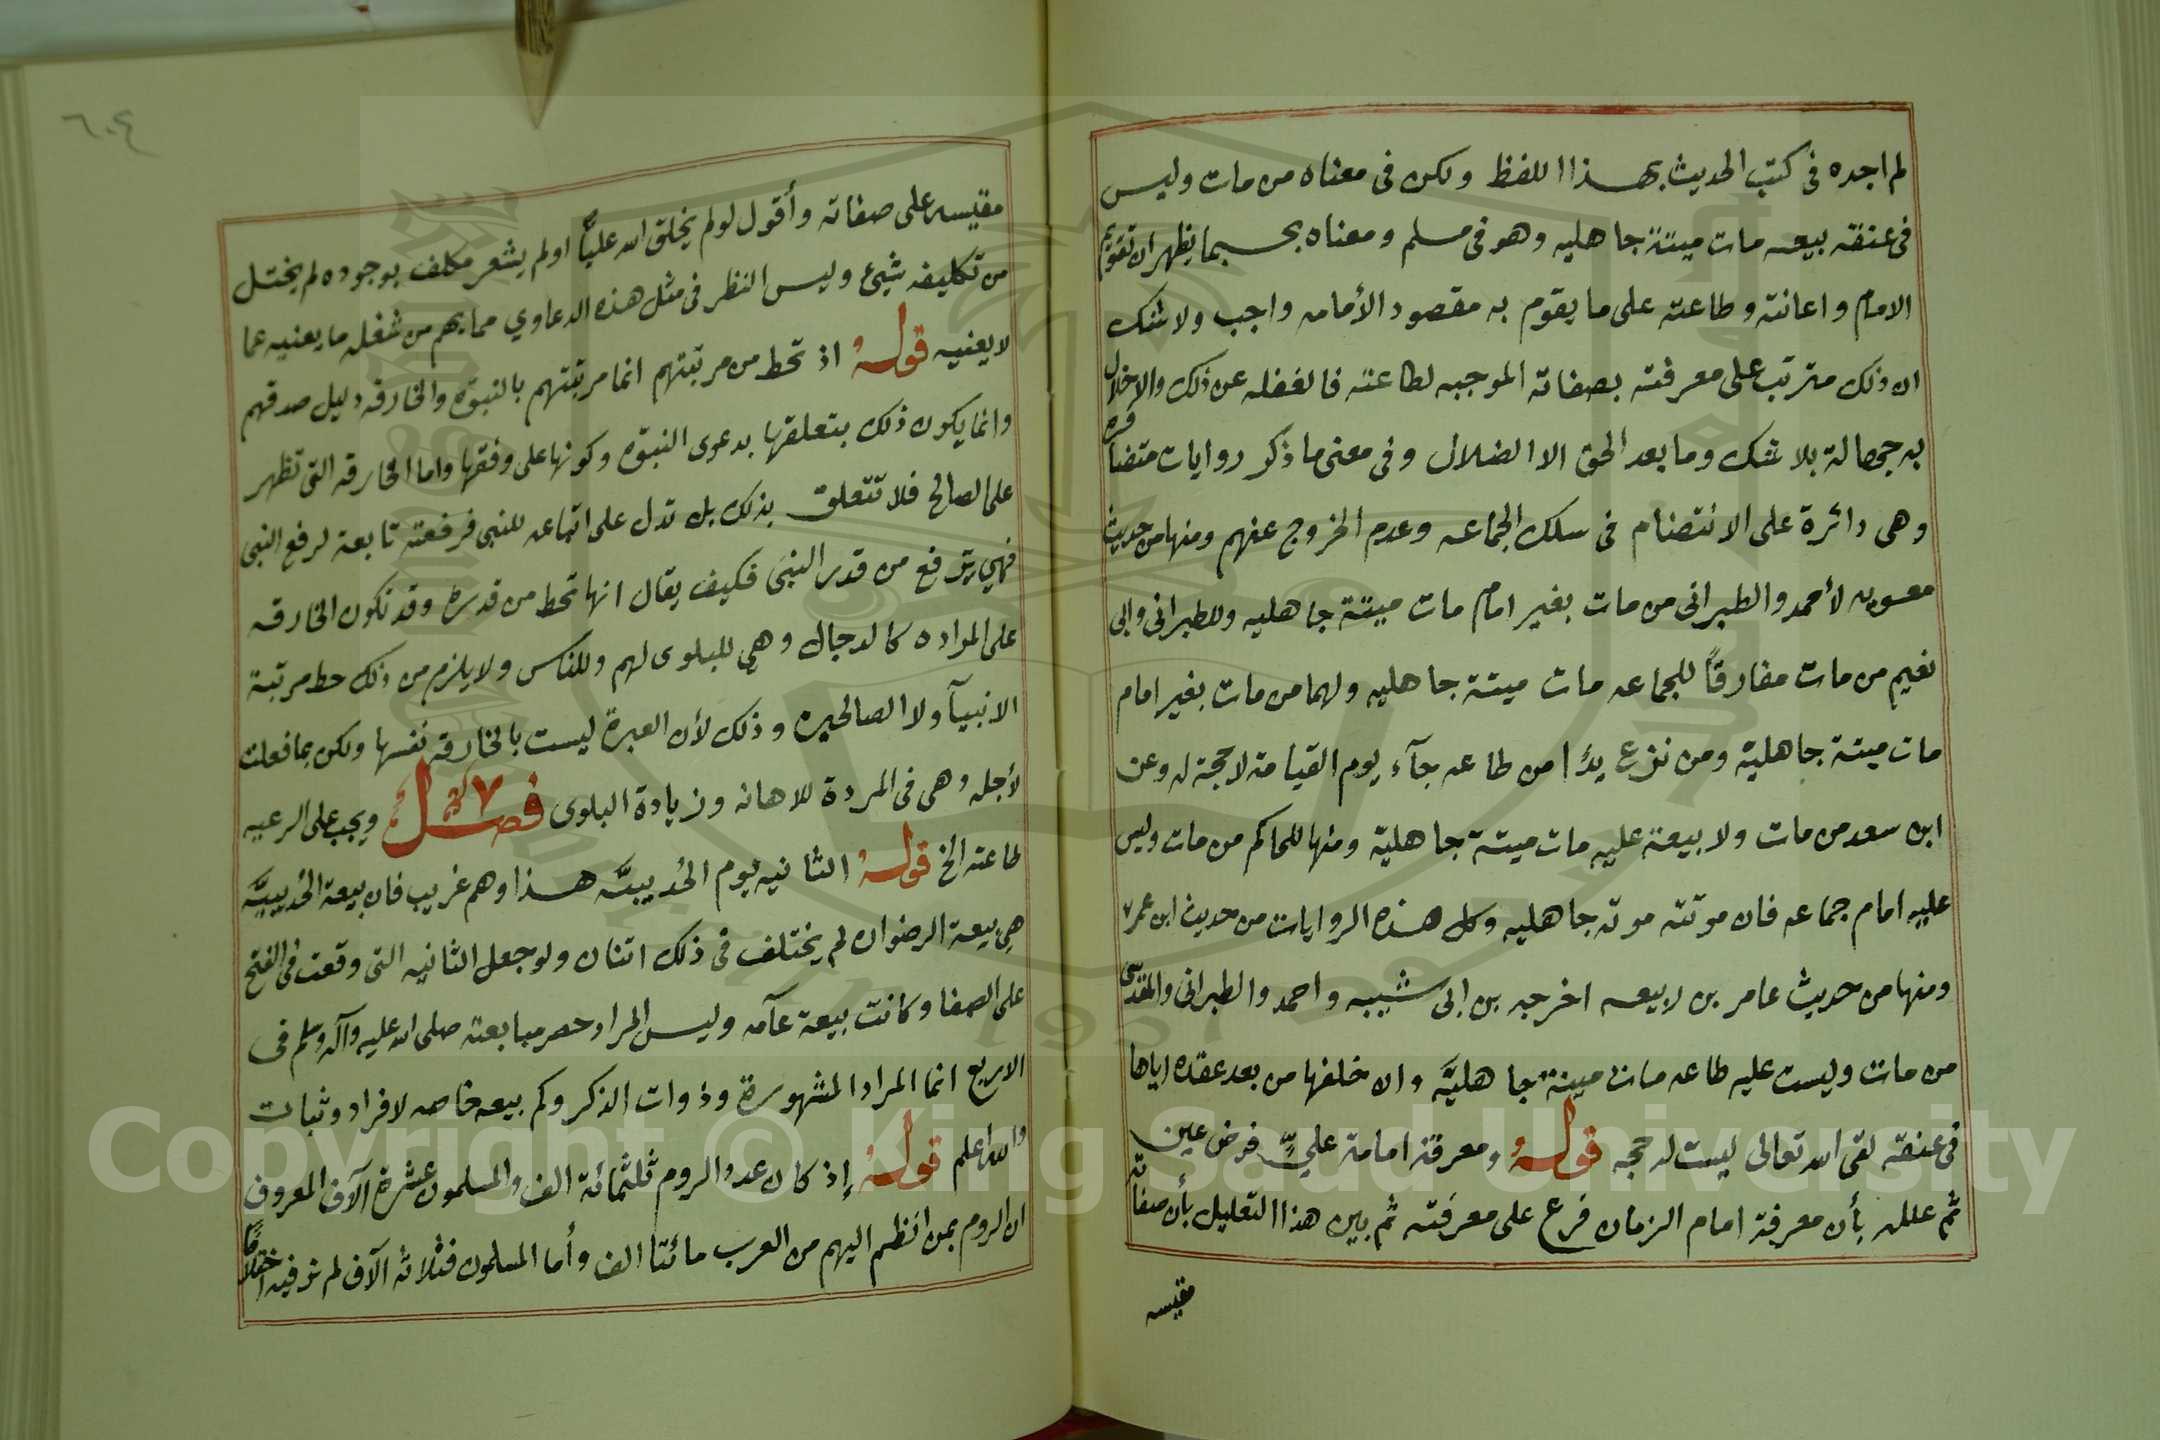 لم اجده في كتب الحديث بهذا اللفظ ولكن في معناه من مات وليس
في عنقه بيعه مات ميتة جاهليه وهو في مسلم ومعناه بحسبما يظهر ان تقويم
الامام واعانته وطاعته على ما يقوم به مقصود الأمامه واجب ولا شك
ان ذلك مترتب على معرفته بصفاته الموجبه لطاعته فالغفله عن ذلك والاخلال
به جهالة بلا شك وما بعد الحق الا الضلال وفي معنى ما ذكر روايات متضافره
وهي دائرة على الانتضام في سلك الجماعه وعدم الخروج عنهم ومنها من حديث
معويه لأحمد والطبراني من مات بغير امام مات ميتة جاهليه وللطبراني وابي
نعيم من مات مفارقًا للجماعه مات ميتة جاهليه ولهما من مات بغير امام
مات ميتة جاهلية ومن نزع يدًا من طاعه جآء يوم القيامة لا حجة له وعن
ابن سعد من مات ولا بيعة عليه مات ميتة جاهلية ومنها للحاكم من مات وليس
عليه امام جماعه فان موتته موته جاهليه وكل هذه الروايات من حديث ابن عمر
ومنها من حديث عامر بن ربيعه اخرجه بن ابي شيبه واحمد والطبراني والمقدسي
من مات وليست عليه طاعه مات ميتة جاهليَّه وان خلفها من بعد عقده اياها
في عنقه لقى الله تعالى ليست له حجه قوله ومعرفة امامة عليٍّ فرض عين
ثم علله بأن معرفة امام الزمان فرع على معرفته ثم بين هذا التعليل بأن صفاته
مقيسه
٦٠٤
مقيسه على صفاته وأقول لو لم يخلق الله عليًّا او لم يشعر مكلف بوجوده لم يختل
من تكليفه شيئ وليس النظر في مثل هذه الدعاوي مما يهم من شغله ما يعنيه عما
لا يعنيه قوله اذ تحط من مرتبتهم انما مرتبتهم بالنبوّه والخارقه دليل صدقهم
وانما يكون ذلك بتعلقها بدعوى النبوّه وكونها على وفقها واما الخارقه التي تظهر
على الصالح فلا تتعلق بذلك بل تدل على اتباعه للنبي فرفعته تابعة لرفع النبي
فهي ترفع من قدر النبي فكيف يقال انها تحط من قدره وقد تكون الخارقه
على المراده كالدجال وهي للبلوى لهم وللناس ولا يلزم من ذلك حط مرتبة
الانبيآ ولا الصالحين وذلك لأن العبرة ليست بالخارقة نفسها ولكن بما فعلت
لأجله وهي في المردة للاهانه وزيادة البلوى فصل ويجب على الرعيه
طاعته الخ قوله الثانيه يوم الحُديبيَّه هذا وهم غريب فان بيعة الحُديبيَّه
هي بيعة الرضوان لم يختلف في ذلك اثنان ولو جعل الثانيه التي وقعت في الفتح
على الصفا وكانت بيعة عآمه وليس المراد حصر مبايعته صلى الله عليه وآله وسلم في
الاربع انما المراد المشهورة وذوات الذكر وكم بيعه خاصه لافراد وثبات
والله اعلم قوله إذ كان عدو الروم ثلثمائة الف والمسلمون عشرة آلاف المعروف
ان الروم بمن انظم اليهم من العرب مائتا الف وأما المسلمون فثلاثه آلاف لم نر فيه اختلافًا
Copyright © King Saud University